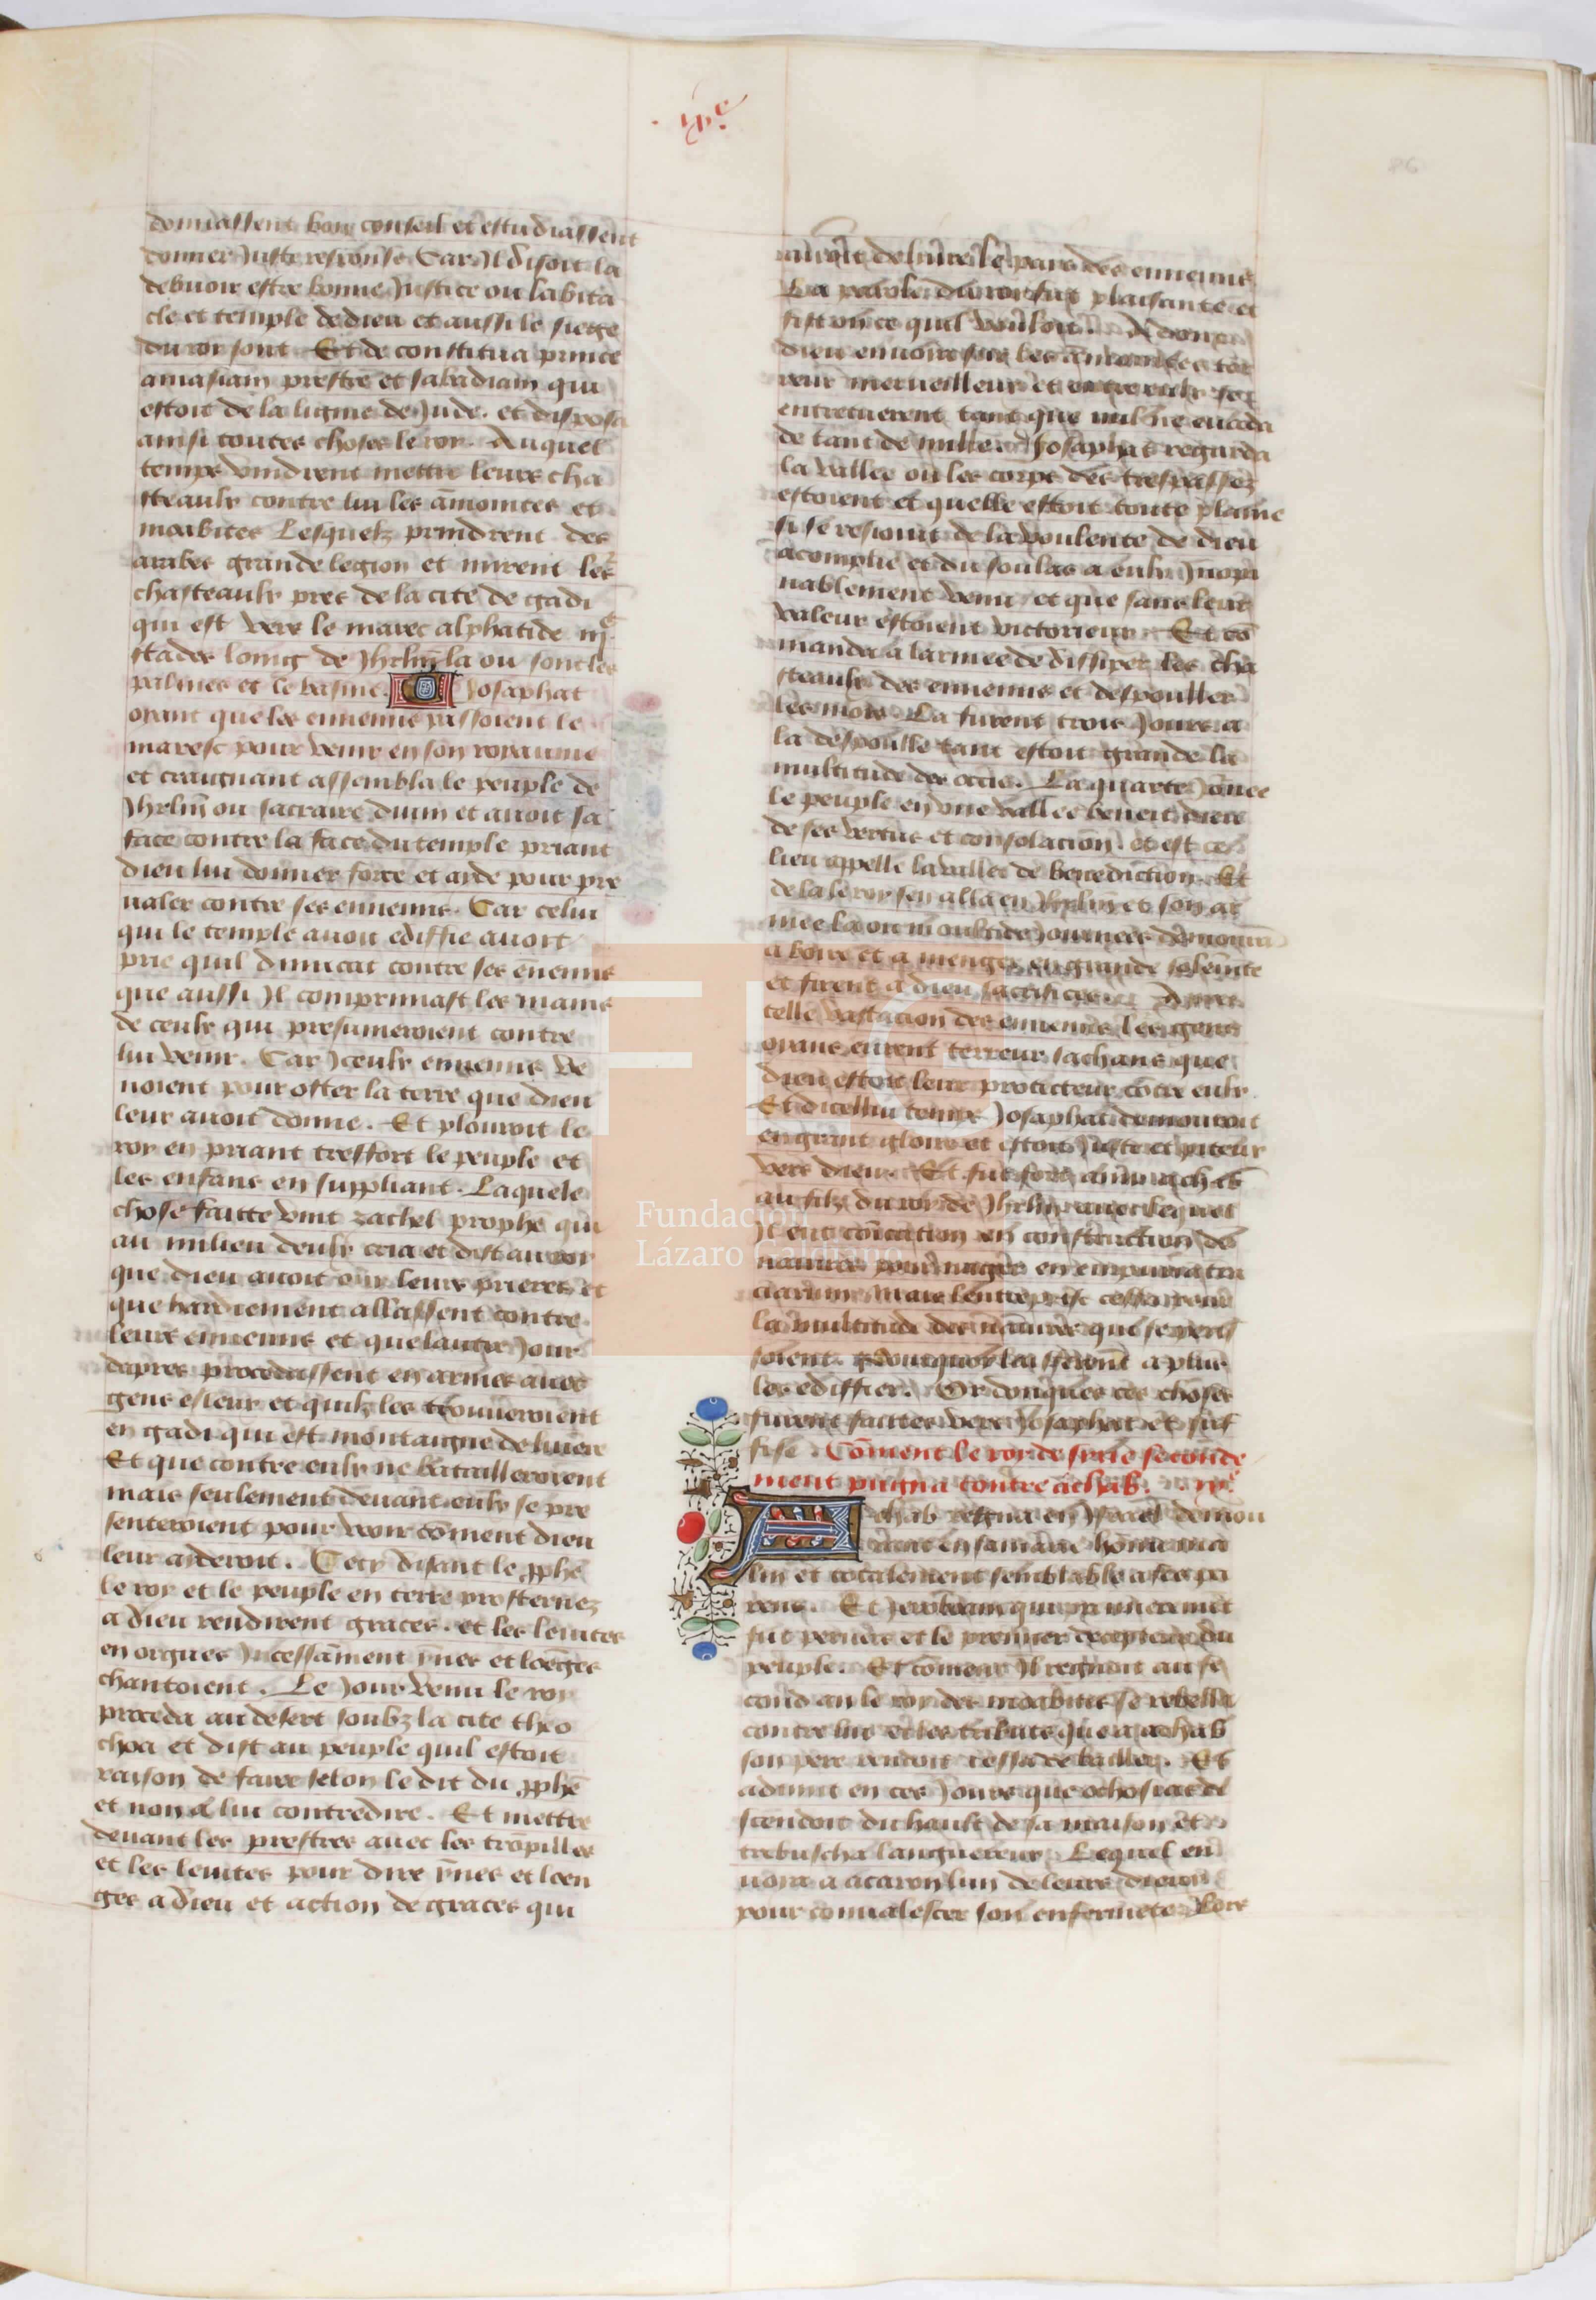 .ixe.
86
donnassent bon conseil et estudiassent
donner Juste response Car Il disoit la
debuoir estre bonne Justice ou labita
cle et temple de dieu et aussi le siege
du roy sont Et de constitua prince
amasiam prestre et sabadiam qui
estoit de la lignie de Jude. et disposa
ainsi toutes choses le roy. Auquel
temps vindrent mettre leurs cha
steaulx contre lui les amonites et
moabites Lesquelz prindrent des
arabes grande legion et mirent les
chasteaulx pres de la cite de gadi
qui est vers le marec alphatide iijc
stades loing de Jhrlm la ou sont les
palmes et le basme. Josaphat
oyant que les ennemis passoient le
maresc pour venir en son royaume
et craignant assembla le peuple de
Jhrlm ou sacraire diuin et auoit sa
face contre la face du temple priant
dieu lui donner force et aide pour pre
ualer contre ses ennemis. Car celui
qui le temple auoit ediffie auoit
prie quil dimicat contre ses enemis
que aussi Il comprimast les mains
de ceulx qui presumeroient contre
lui venir. Car Iceulx ennemis ve
noient pour oster la terre que dieu
leur auoit donne. Et plouroit le
roy en priant tresfort le peuple et
les enfans en suppliant. Laquele
chose faitte vint zachel prophe qui
au milieu deulx cria et dist au roy
que dieu auoit oy leurs prieres et
que hardiement allassent contre
leurs ennemis et que lautre Jour
dapres procedassent en armes auec
gens esleux et quilz les trouueroient
en gadi qui est montaigne de liuiere
Et que contre eulx ne batailleroient
mais seulement deuant eulx se pre
senteroient pour veoir coment dieu
leur aideroit. Cecy disant le pphe
le roy et le peuple en terre prosternez
a dieu rendirent graces. et les leuites
en orgues Incessament ymes et loeges
chantoient. Le Jour venu le roy
proceda au desert soubz la cite theo
choa et dist au peuple quil estoit
raison de faire selon le dit du pphe
et non a lui contredire. Et mettre
deuant les prestres auec les tropilles
et les leuites pour dire ymes et loen
ges a dieu et action de graces qui
auoit deliure le pais des ennemis
La parole du roy fut plaisante et
fist on ce quil vouloit. Adonc
dieu enuoia sur les amonites tor
reur merueilleux et entre eulx se
entretuerent tant que nul ne euada
de tant de mille. Josaphat regarda
la vallee ou les corps des trespassez
estoient et quelle estoit toute plaine
si se resiouit de la voulente de dieu
acomplie et du soulas a eulx Inopi
nablement venu et que sans leur
valeur estoient victorieux Et co
manda a larmee de dissiper les cha
steaulx des ennemis et despoullier
les mors. La furent trois Jours a
la despoulle tant estoit grande la
multitude des occis. La quarte Jornee
le peuple en vne vallee beneit dieu
de ses vertus et consolacion. et est ce
lieu appelle la vallee de benediction. Et
de la le roy sen alla en Jhrlm et son ar
mee la ou multitude Journees demoura
a boire et a menger en grande solemnite
et firent a dieu sacrifices. Apres
telle vastacion des ennemis les gens
oyans eurent terreur sachans que
dieu estoit leur protecteur cotre eulx
Et dicellui temps Josaphat demouroit
en grant gloire et estoit Juste et piteux
vers dieu. Et fut fort ami achab
au filz du roy de Jhrlm auec lequel
Il eut comunion en construction de
nauires pour nagier en
mais lentreprise cessa pour
la multitude des nauires que se per
soient. pourquoy laisserent a plus
les ediffier. Or donques ces choses
furent faittes vers Josaphat et suf
fise. Coment le roy de sirie seconde
ment puigna contre achab.
Achab regna en Israel demou
rant en samarie home ma
lin et totalement semblable a ses pa
rens. Et Jeroboam qui premierement
fut peruers et le premier decepteur du
peuple. Et comme Il regnoit au se
cond an le roy des moabites se rebella
contre lui et les tributs que a achab
son pere rendoit cessa de bailler. Et
aduint en ces Jours que ochosias de
scendoit du hault de sa maison et
trebuscha langoreux. Lequel en
uoia a acaron lun de leurs dieux
pour conualescer son enfermete Lors
Fundación
Lázaro Galdiano